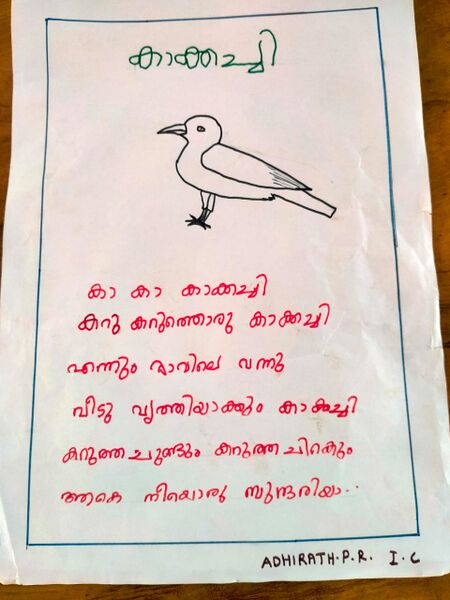 കാക്കച്ചി
കാ കാ കാക്കച്ചി
കറു കറുത്തൊരു കാക്കച്ചി
എന്നും രാവിലെ വന്നു
വീടു വൃത്തിയാക്കും കാക്കച്ചി
കറുത്ത ചുണ്ടും കറുത്ത ചിറകും
ആകെ നീയൊരു സുന്ദരിയാ..
ADHIRATH.P.R. I.C